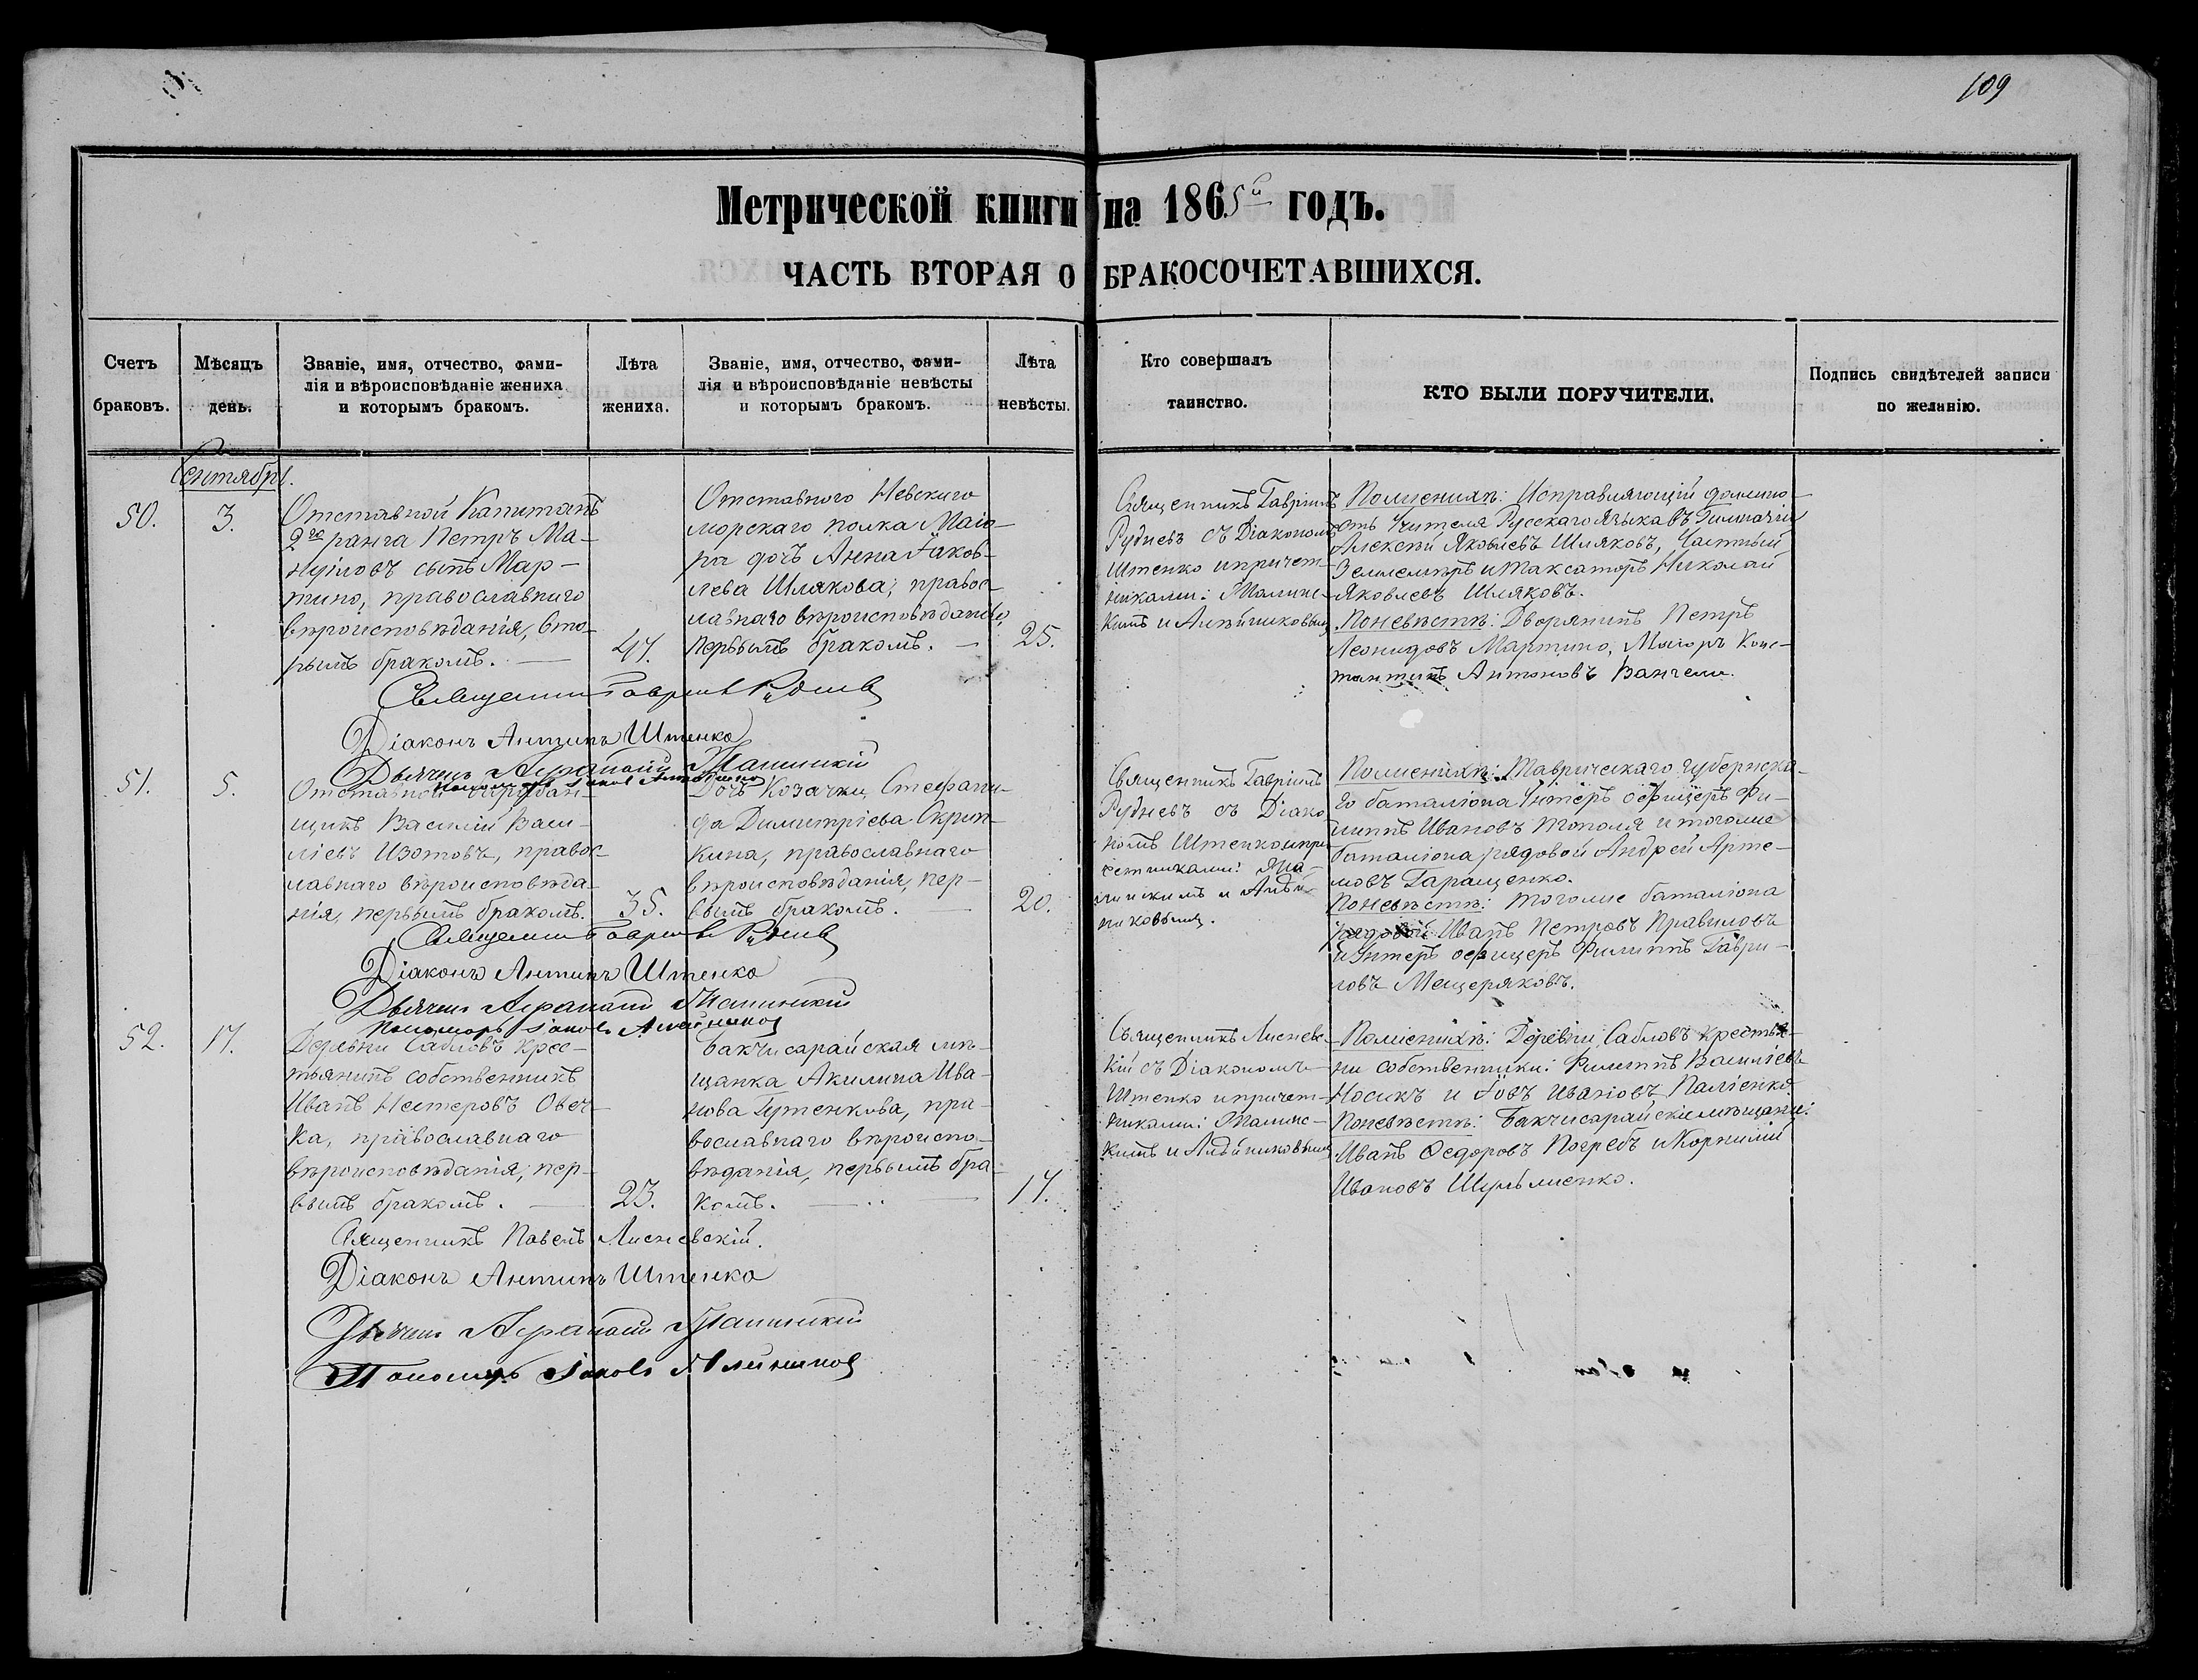 109
Метрической книги на 1865й годъ.
ЧАСТЬ ВТОРАЯ О БРАКОСОЧЕТАВШИХСЯ.
Счетъ браковъ.
Мѣсяцъ день.
Званіе, имя, отчество, фами-
лія и вѣроисповѣданіе жениха
и которымъ бракомъ.
Лѣта жениха.
Званіе, имя, отчество, фами-
лія и вѣроисповѣданіе невѣсты
и которымъ бракомъ.
Лѣта невѣсты.
Кто совершалъ
таинство.
КТО БЫЛИ ПОРУЧИТЕЛИ.
Подпись свидѣтелей записи
по желанію.
Сентябрь.
50.
3.
Отставной Капитанъ
2го ранга Петръ Ма-
нуиловъ сынъ Мар-
тино, православнаго
вѣроисповѣданія, вто-
рымъ бракомъ.
47.
Отставного Невскаго
морскаго полка Маіо-
ра дочь Анна Іаков-
лева Шлякова, правос-
лавнаго вѣроисповѣданія,
первымъ бракомъ.
25.
Священникъ Гавріилъ
Рудневъ съ Діакономъ
Штенко и причет-
никами:
Пожениху: Исправляющій должно-
сть Учителя Русскаго Языка въ Гимназіи
Алексѣй Яковлевъ Шляковъ, Частный
Землемѣръ и Таксаторъ Николай
Яковлевъ Шляковъ.
Поневѣстѣ: Дворянинъ Петръ
Леонидовъ Мартино, Маіоръ Конс-
тантинъ Антоновъ
Священникъ Гавріилъ Рудневъ
Діаконъ Антипъ Штенко
51.
5.
Отставной
Василій Васи-
ліевъ Изотовъ, правос-
лавнаго вѣроисповѣда-
нія, первымъ бракомъ.
35.
Дочь Козачки, Стефани-
да Димитріева Скрып-
кина, православнаго
вѣроисповѣданія, пер-
вымъ бракомъ.
20.
Священникъ Гавріилъ
Рудневъ съ Діако-
номъ Штенко и при-
четниками:
Пожениху: Таврическаго Губернска-
го баталіона Унтеръ офицеръ Фи-
липпъ Ивановъ и тогоже
баталіона рядовой Андрей Арте-
мовъ Гаращенко.
Поневѣстѣ: тогоже баталіона
рядовой Иванъ Петровъ Правиловъ
и Унтеръ офицеръ Филиппъ Гаври-
ловъ Мещеряковъ.
Священникъ Гавріилъ Рудневъ
Діаконъ Антипъ Штенко
52.
17.
Деревни Сабловъ крес-
тьянинъ собственникъ
Иванъ Нестеровъ Овеч-
ка, православнаго
вѣроисповѣданія, пер-
вымъ бракомъ.
23.
Бакчисарайская мѣ-
щанка Акилина Ива-
нова Гутенкова, пра-
вославнаго вѣроиспо-
вѣданія, первымъ бра-
комъ.
17.
Священникъ Лисневс-
кій съ Діакономъ
Штенко и причет-
никами:
Пожениху: Деревни Сабловъ крестья-
ни собственники: Филиппъ Василіевъ
Носикъ и Іовъ Ивановъ Паліенко.
Поневѣстѣ: Бакчисарайскіе мѣщане:
Иванъ Ѳедоровъ Погребъ и Корнилій
Ивановъ
Священникъ Павелъ Лисневскій.
Діаконъ Антипъ Штенко